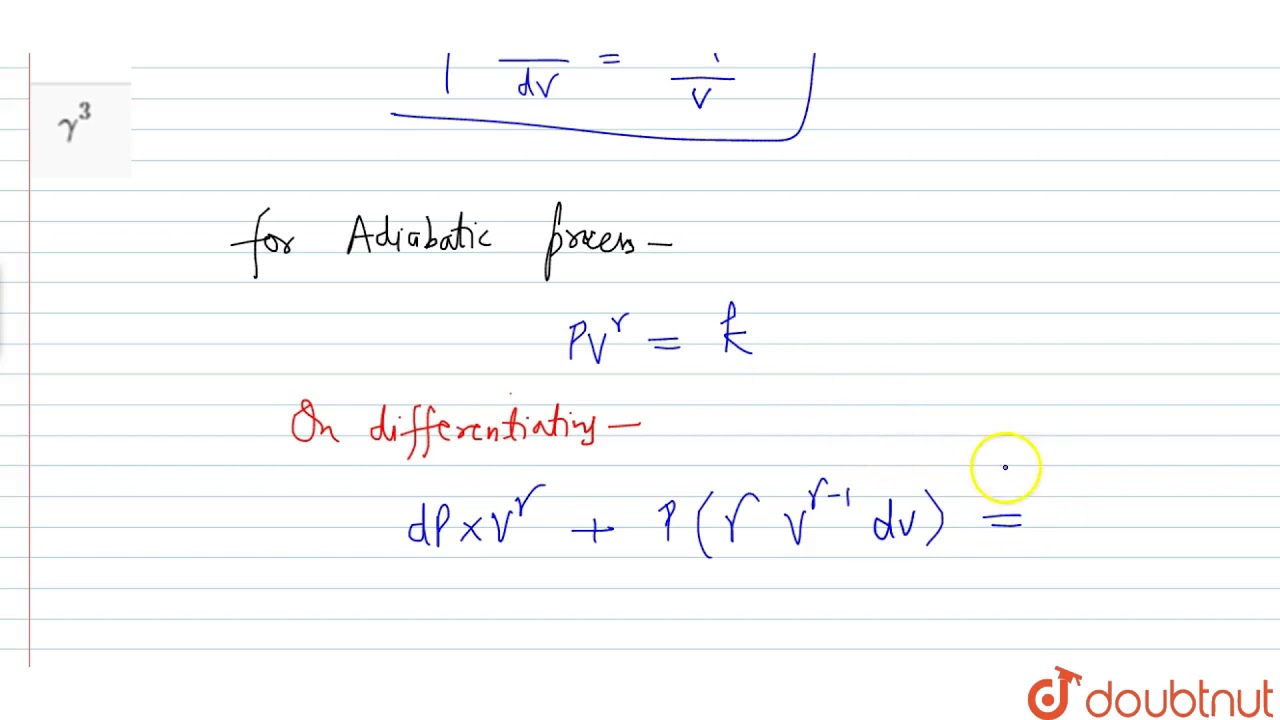 dv = v
γ³
for Adiabatic process –
PV^γ = k
On differentiating –
dP × V^γ + P(γ V^γ-1 dv) =
doubtnut